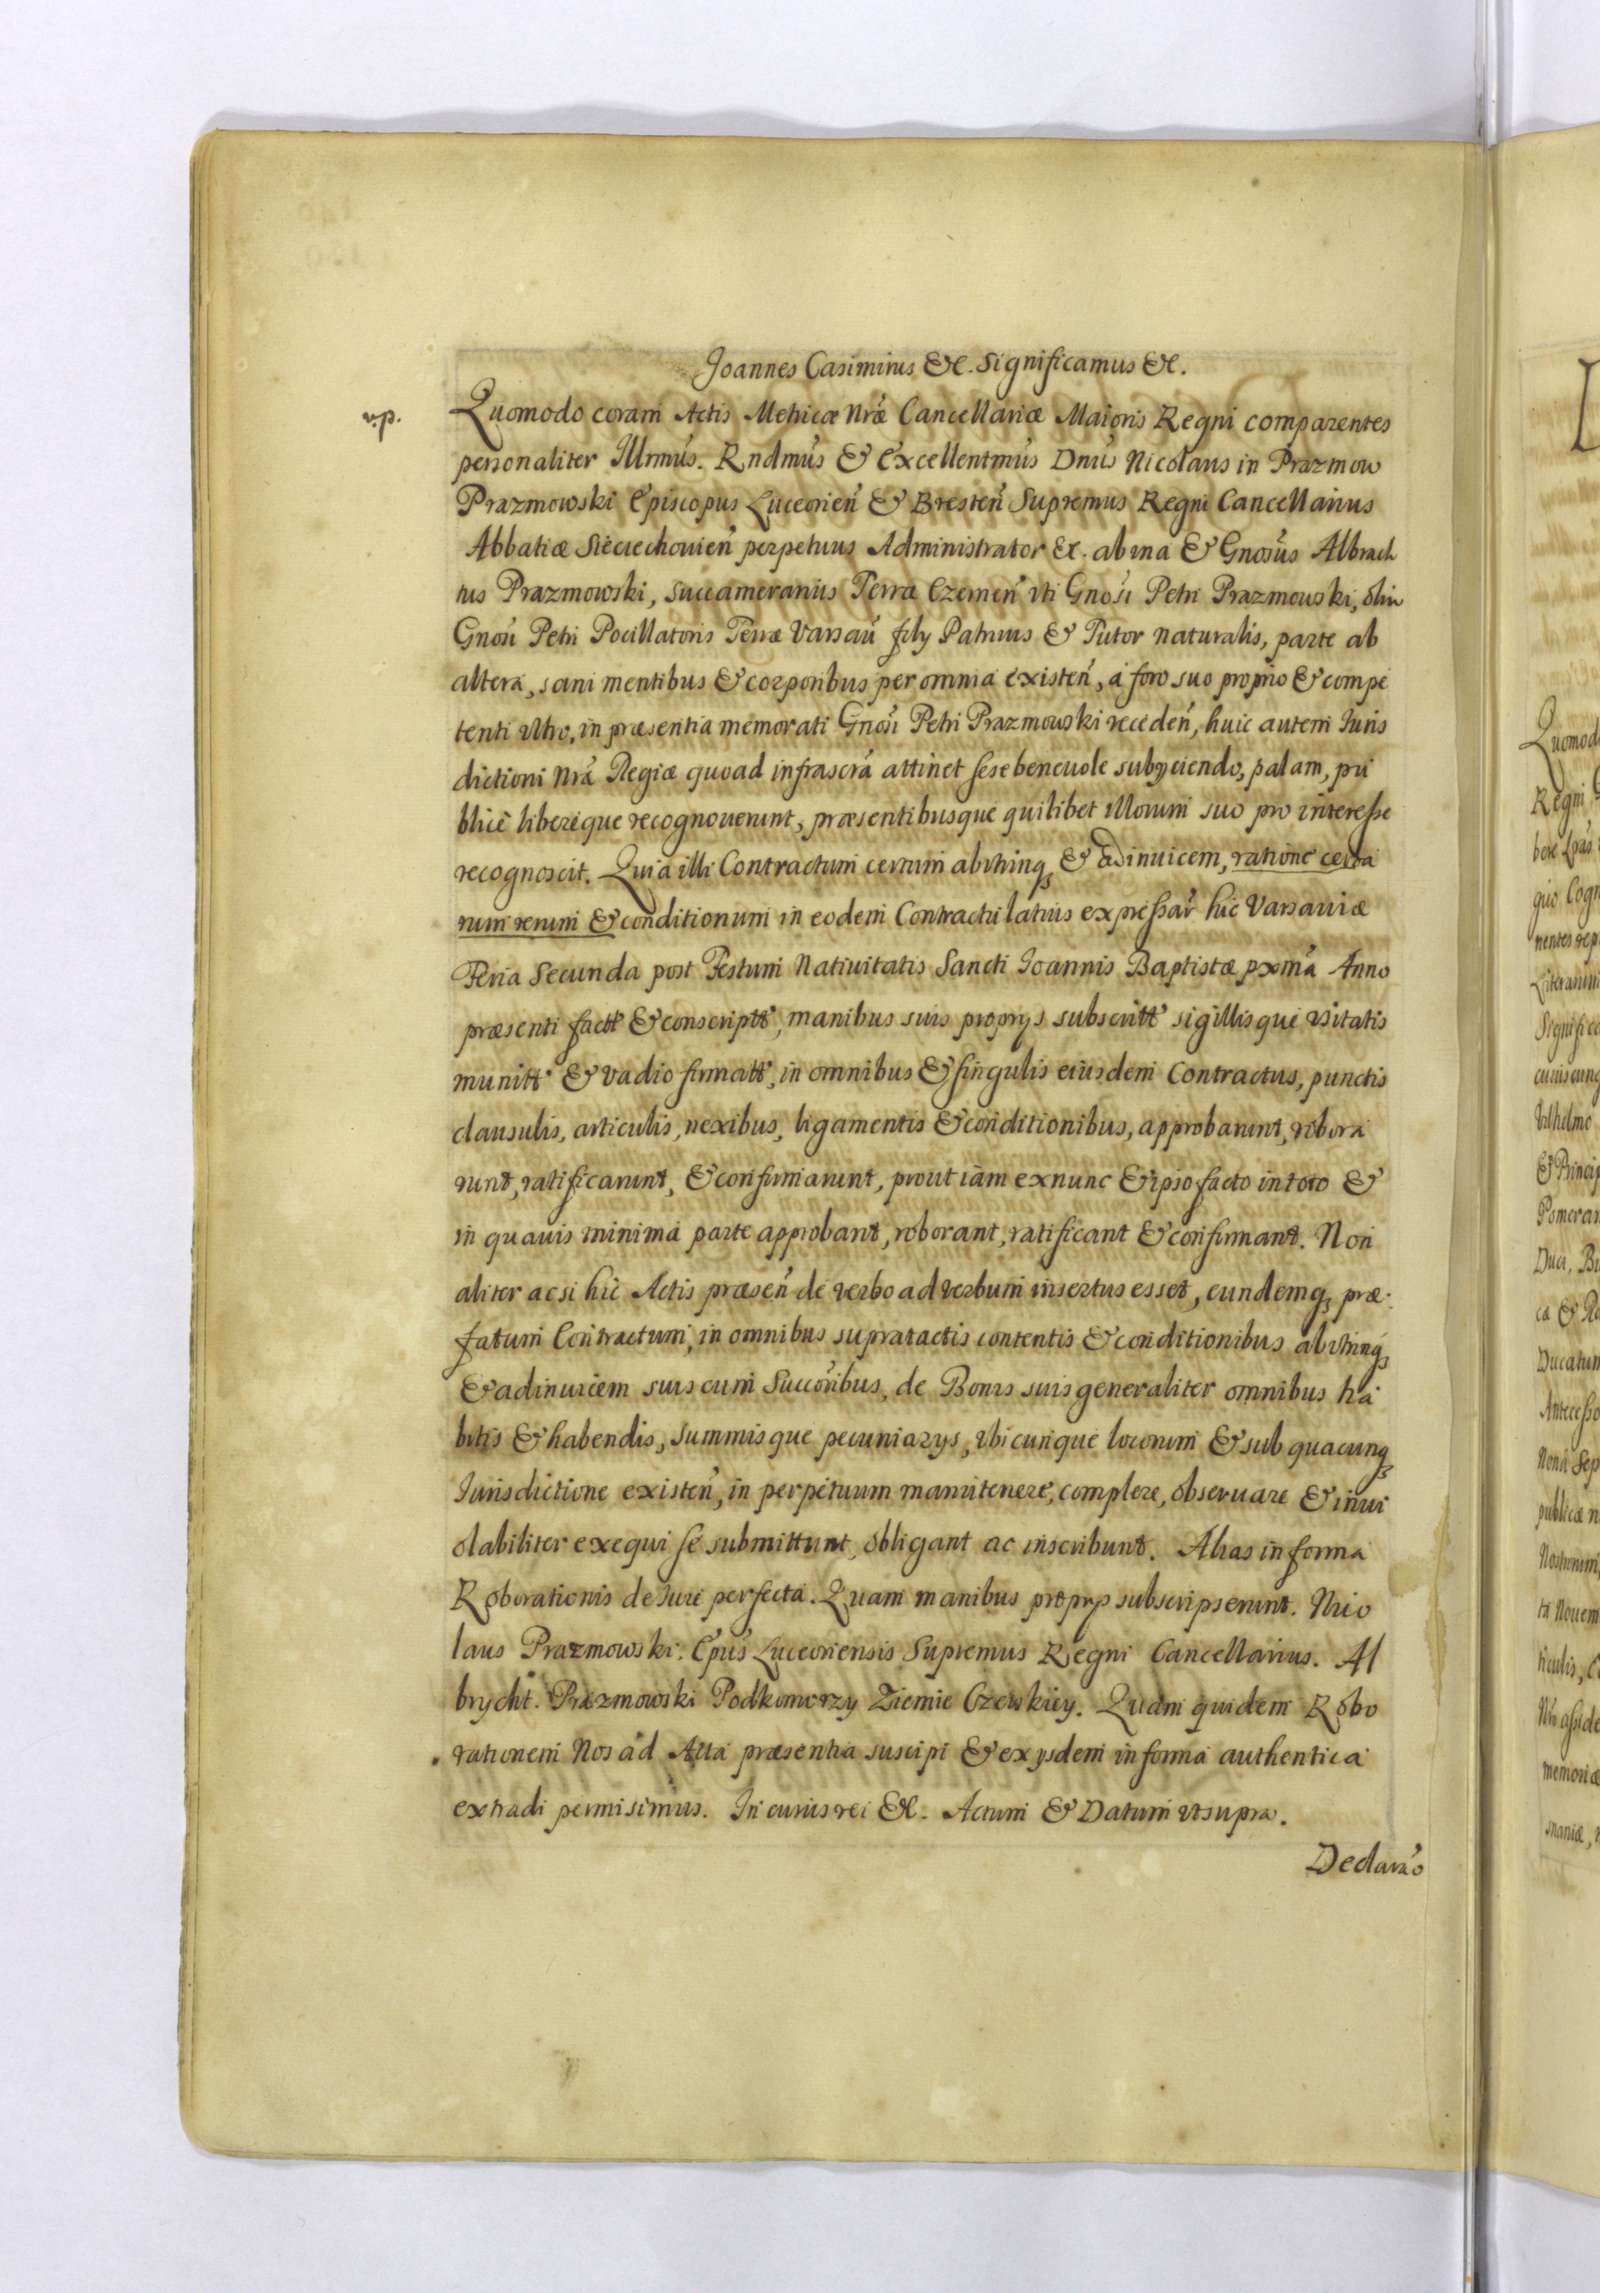 Joannes Casimirus &c. Significamus &c.
v.p.
Quomodo coram Actis Metricæ Nræ Cancellariæ Maioris Regni comparentes
personaliter Illrmus. Rndmus & Excellentmus Dnus Nicolaus in Prazmow
Prazmowski Episcopus Luceorien & Bresten Supremus Regni Cancellarius
Abbatiæ Sieciechouien perpetuus Administrator &c. ab una & Gnosus Albrach
tus Prazmowski, Succamerarius Terræ Czernen uti Gnosi Petri Prazmowski, olim
Gnosi Petri Pocillatoris Terræ Varsau fily Patruus & Tutor naturalis, parte ab
altera, sani mentibus & corporibus per omnia existen, á foro suo proprio & compe
tenti ultro, in præsentia memorati Gnosi Petri Prazmowski receden, huic autem Juris
dictioni Nræ Regiæ quoad infrascra attinet sese beneuole subyciendo, palam, pu
blicé liberéque recognouerunt, præsentibusque quilibet illorum suo pro interesse
recognoscit. Quia illi Contractum certum abutrinq, & adinuicem, ratione certa
rum rerum & conditionum in eodem Contractu latius expressar hic Varsauiæ
Feria Secunda post Festum Natiuitatis Sancti Joannis Baptistæ pxma Anno
præsenti factt & conscriptt, manibus suis proprys subscritt sigillisque usitatis
munitt & vadio firmatt, in omnibus & singulis eiusdem Contractus, punctis
clausulis, articulis, nexibus, ligamentis & conditionibus, approbarunt, robora
runt, ratificarunt, & confirmarunt, prout iam exnunc & ipso facto in toto &
in quauis minima parte approbant, roborant, ratificant & confirmant. Non
aliter ac si hic Actis præsen de verbo ad verbum insertus esset, eundemq, præ.
fatum Contractum, in omnibus supratactis contentis & conditionibus abutrinq,
& adinuicem suis cum Succoribus, de Bonis suis generaliter omnibus ha
bitis & habendis, summisque pecuniarys, ubicunque locorum & sub quacunq,
Jurisdictione existen, in perpetuum manutenere, complere, obseruare & inui
olabiliter exequi se submittunt, obligant ac inscribunt. Alias in forma
Roborationis de Jure perfecta. Quam manibus proprys subscripserunt. Nico
laus Prazmowski. Epus Luceoriensis Supremus Regni Cancellarius. Al
brycht. Prazmowski Podkomorzy Ziemie Czerskiey. Quam quidem Robo
rationem Nos ad Acta præsentia suscipi & ex ysdem in forma authentica
extradi permisimus. In cuius rei &c. Actum & Datum ut supra.
Declarao